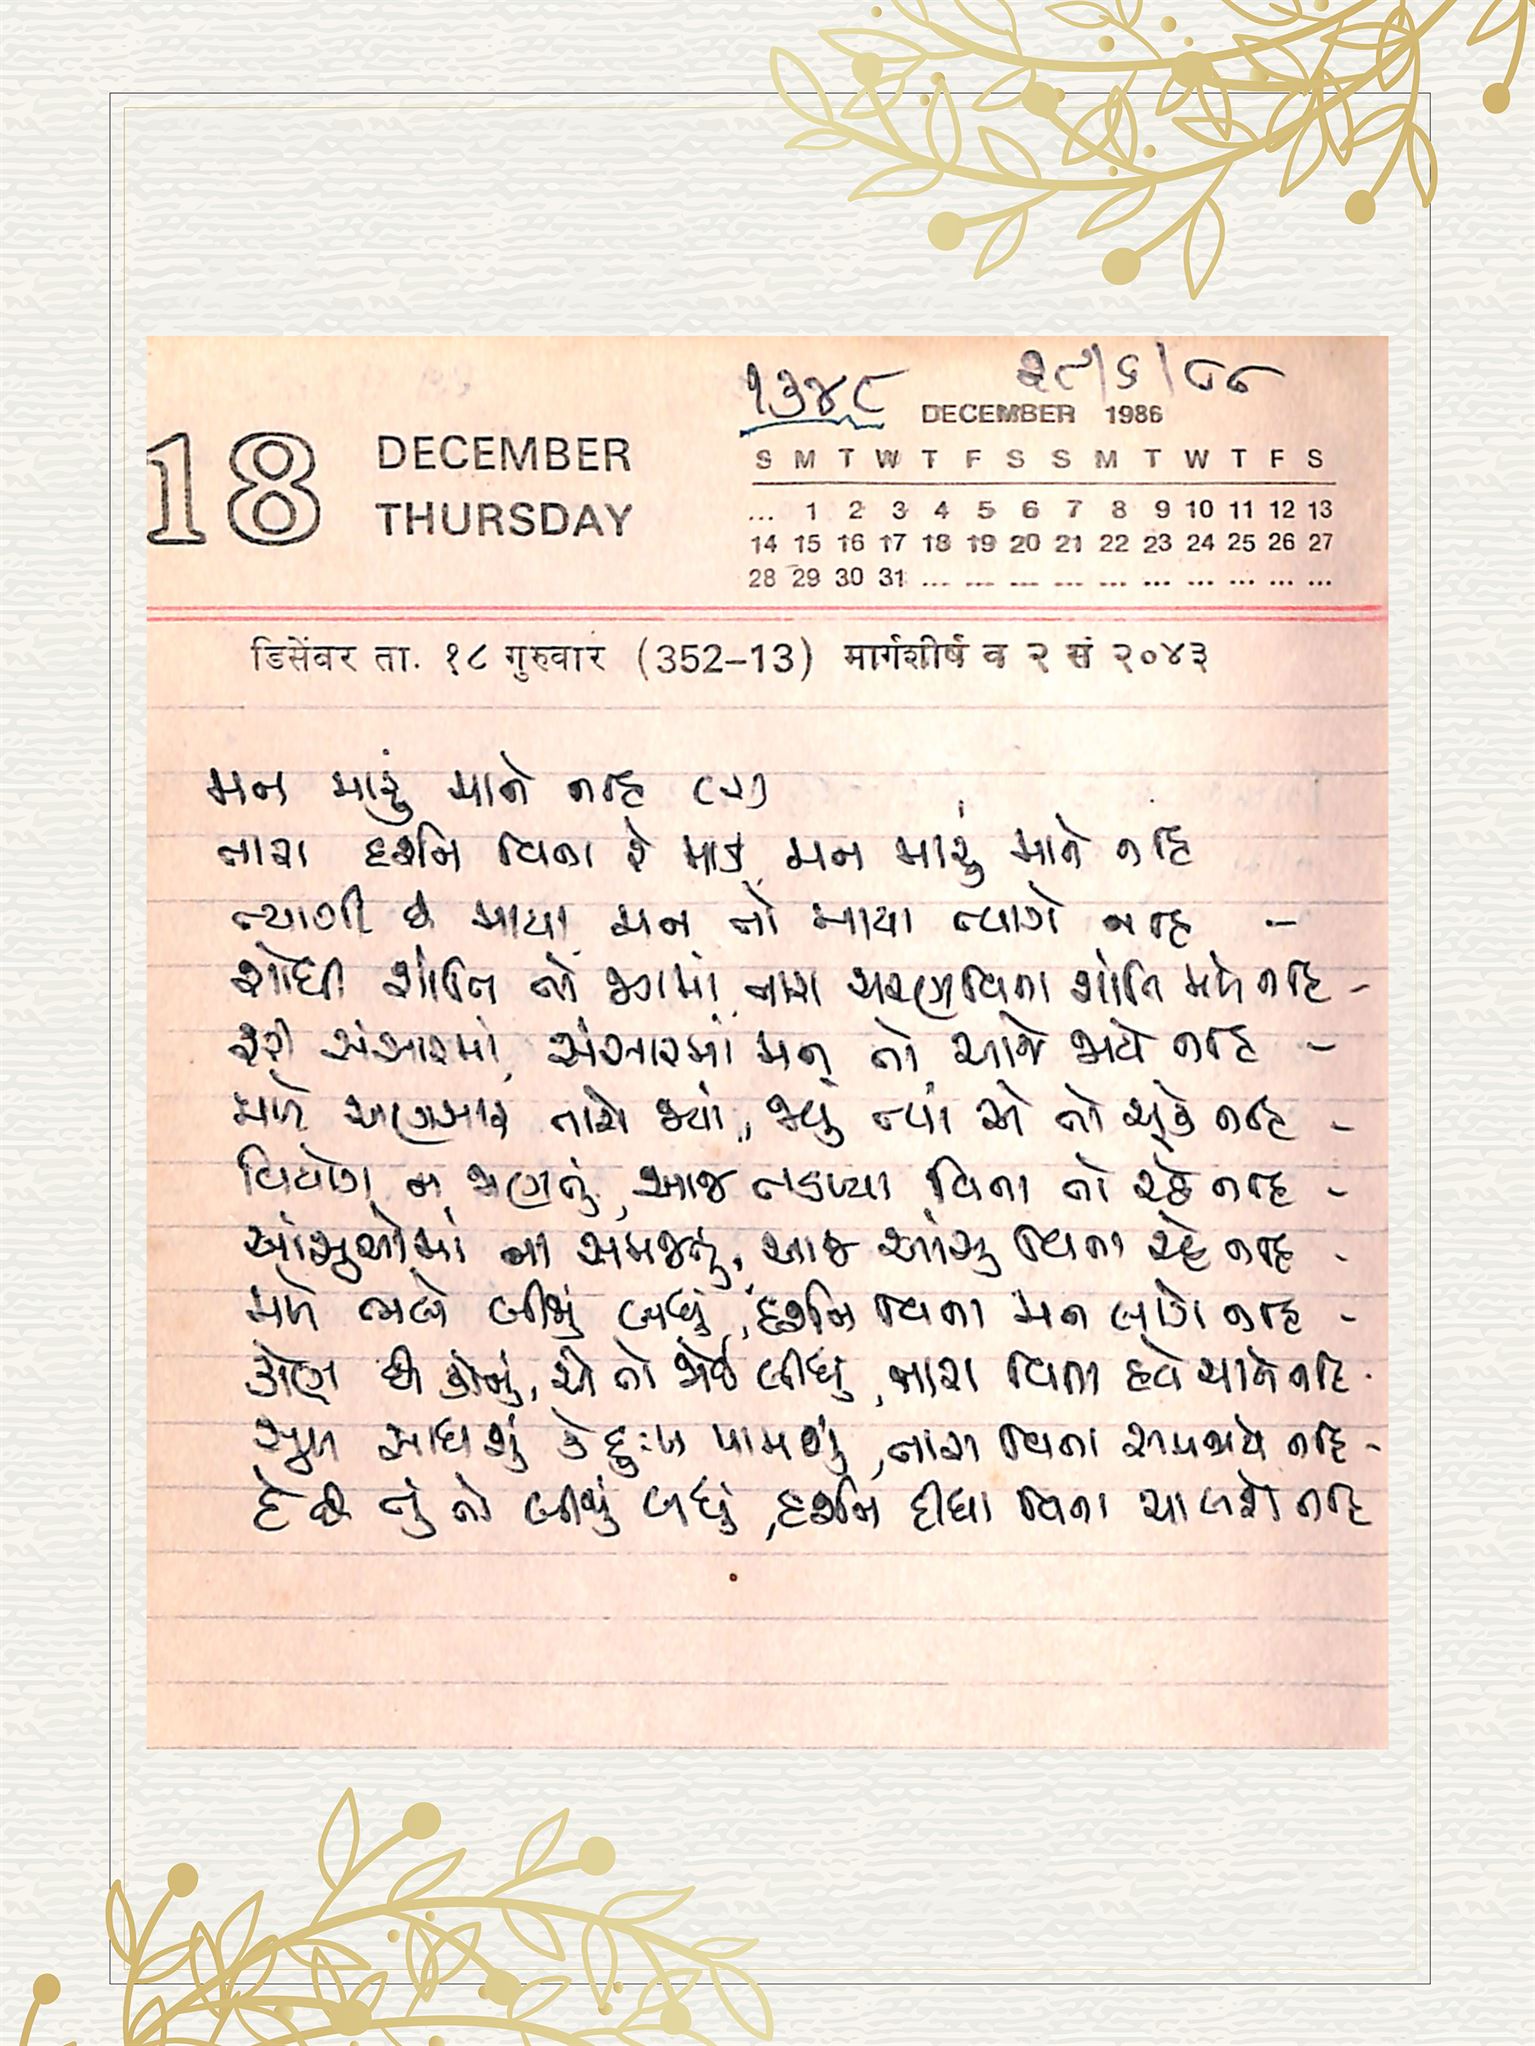 ૧૩૪૮ ૨૮/૬/૮૮
18 DECEMBER THURSDAY
DECEMBER 1986
S M T W T F S S M T W T F S
... 1 2 3 4 5 6 7 8 9 10 11 12 13
14 15 16 17 18 19 20 21 22 23 24 25 26 27
28 29 30 31 ... ... ... ... ... ... ... ... ... ...
डिसेंबर ता. १८ गुरुवार (352–13) मार्गशीर्ष व २ सं २०४३
મન મારું માને નહિ (૨)
તારા દર્શન વિના રે માડી, મન મારું માને નહિ
ત્યાગી છે માયા, મન તો માયા ત્યાગે નહિ -
શોધી શાંતિ તો જગમાં, તારા ચરણ વિના શાંતિ મળે નહિ -
ફરી સંસારમાં, સંસારમાં મન તો આજે જાયે નહિ -
મળે અણસાર તારો જ્યાં, જવું ત્યાં એ તો ચૂકે નહિ -
વિયોગ ન જાણતું, આજ તડપ્યા વિના તો રહે નહિ -
આંસુઓમાં ના સમજતું, આજ આંસુ વિના રહે નહિ -
મળે ભલે બીજું બધું, દર્શન વિના મન લાગે નહિ -
કોણ છે કોનું, એ તો જોઈ લીધું, તારા વિના હવે ચાલે નહિ -
સુખ સાધશું કે દુઃખ પામશું, તારા વિના રહેવાયે નહિ -
દે છે તું તો બીજું બધું, દર્શન દીધા વિના ચાલશે નહિ